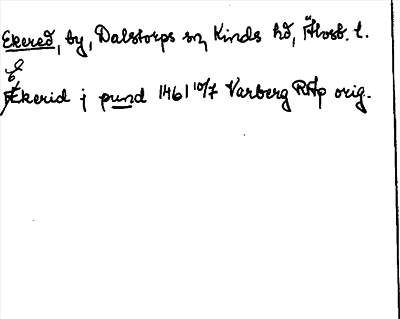 Ekered, by, Dalstorps sn, Kinds hd, Älvsb. l.
E
Ekerid j pund 1461 10/7 Varberg RAp orig.